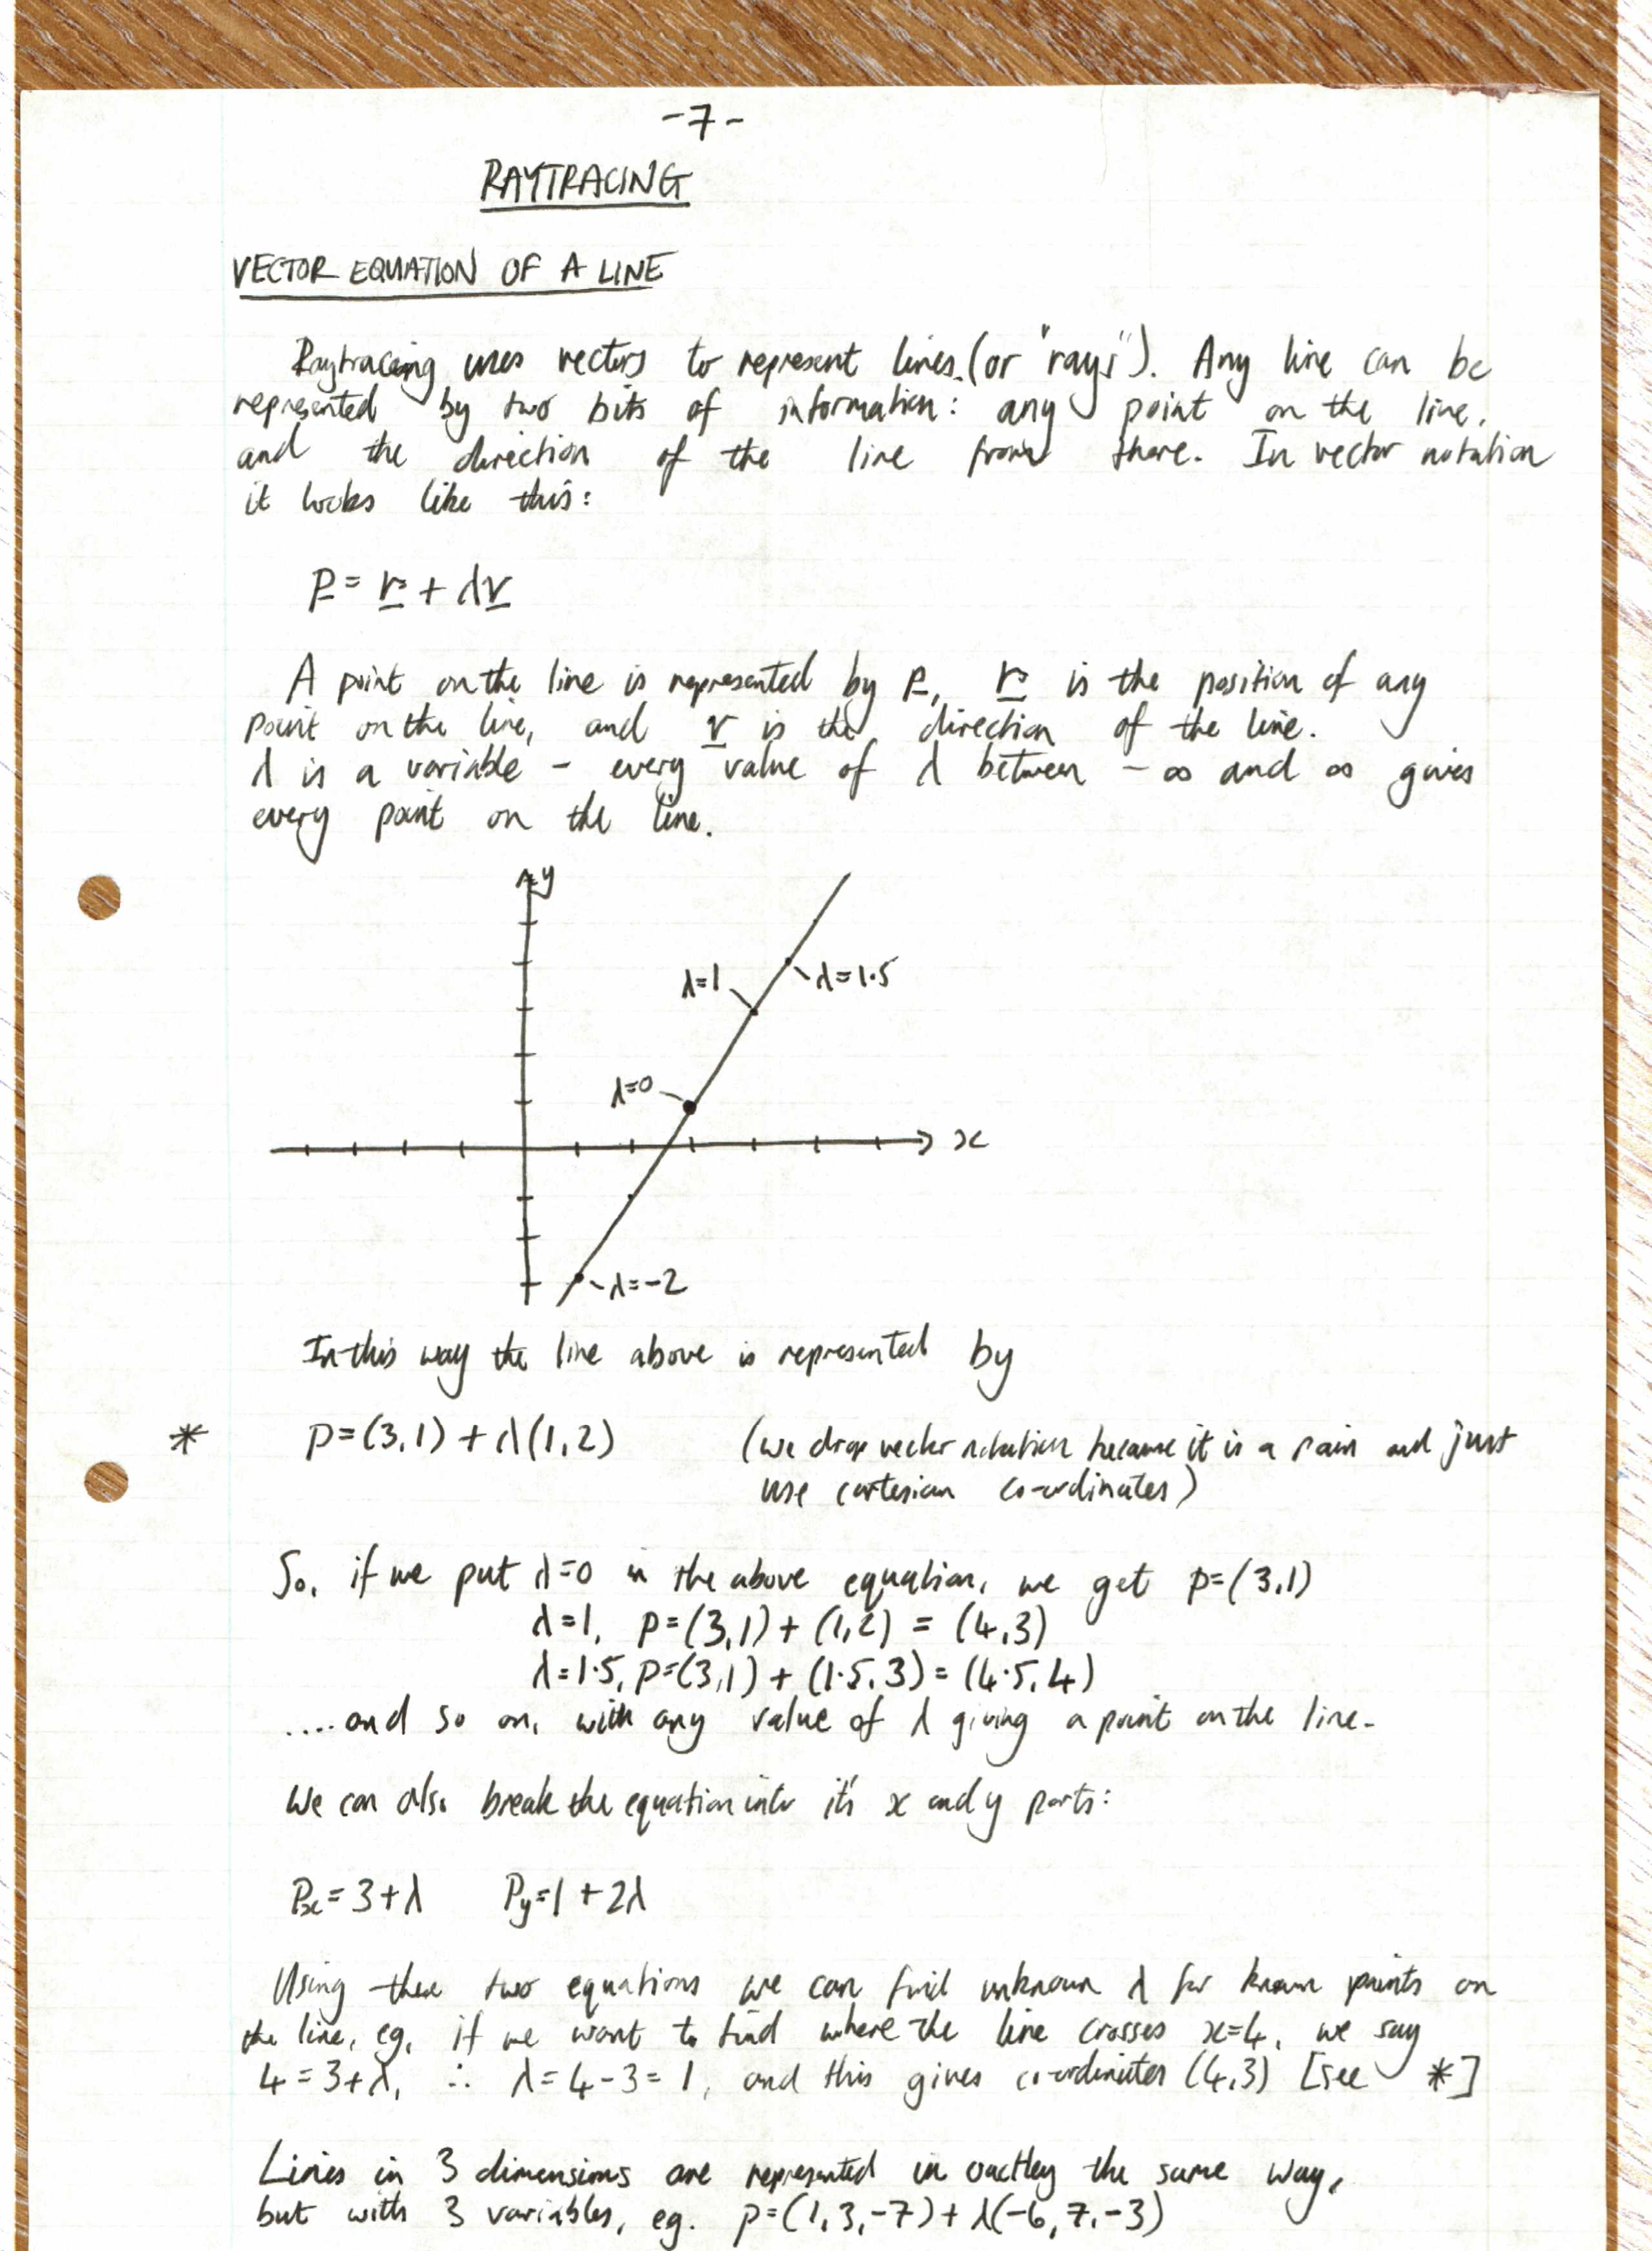 -7-
RAYTRACING
VECTOR EQUATION OF A LINE
Raytracing uses vectors to represent lines (or "rays"). Any line can be
represented by two bits of information: any point on the line,
and the direction of the line from there. In vector notation
it looks like this:
p = r + λv
A point on the line is represented by p, r is the position of any
point on the line, and v is the direction of the line.
λ is a variable - every value of λ between -∞ and ∞ gives
every point on the line.
y
λ=1
λ=1·5
λ=0
x
λ=-2
In this way the line above is represented by
* p=(3,1) + λ(1,2) (we drop vector notation because it is a pain and just
use cartesian co-ordinates)
So, if we put λ=0 in the above equation, we get p=(3,1)
λ=1, p=(3,1) + (1,2) = (4,3)
λ=1·5, p=(3,1) + (1·5,3) = (4·5,4)
....and so on, with any value of λ giving a point on the line.
We can also break the equation into it's x and y parts:
Px=3+λ Py=1+2λ
Using these two equations we can find unknown λ for known points on
the line, eg. if we want to find where the line crosses x=4, we say
4=3+λ, ∴ λ=4-3=1, and this gives co-ordinates (4,3) [see *]
Lines in 3 dimensions are represented in exactley the same way,
but with 3 variables, eg. p=(1,3,-7)+λ(-6,7,-3)